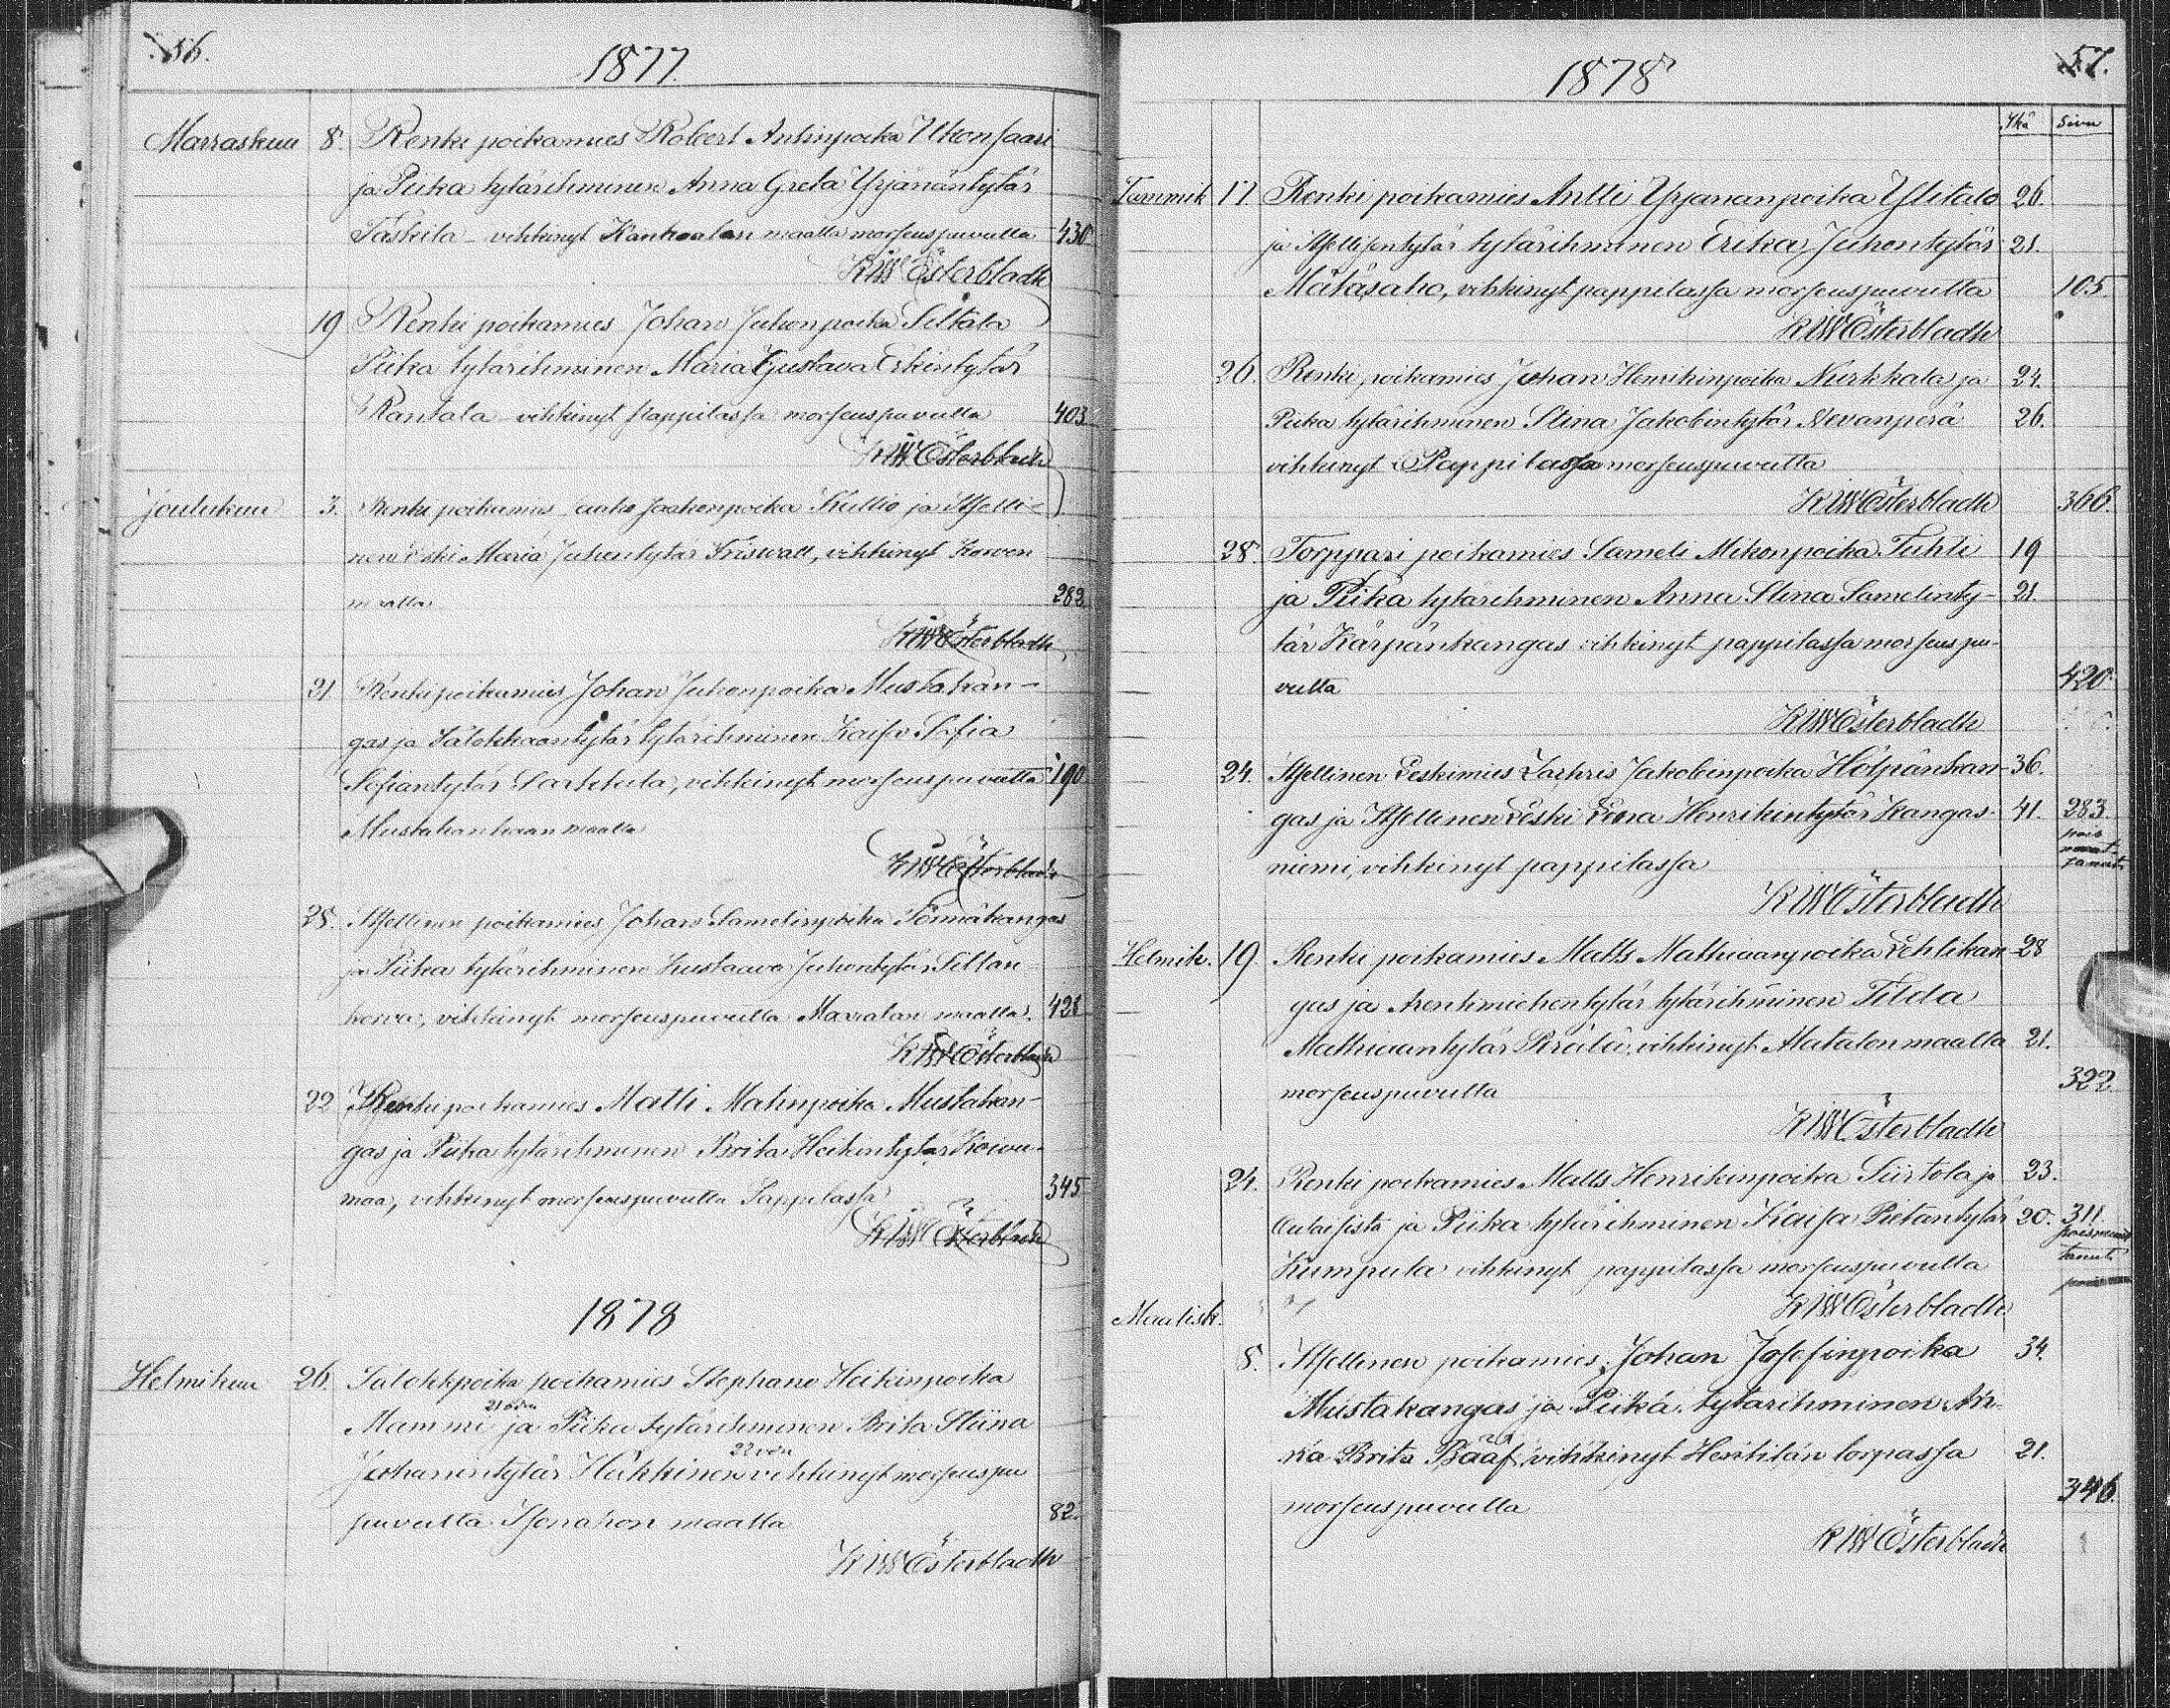 56.
1877.
Marraskuu 8. Renki poikamies Robert Antinpoika Ukonsaari
ja Piika tytärihminen Anna Greta Yrjänäntytär
Taskila vihkinyt Kankaalan maalla morseuspuvulla 430
KWÖsterbladh
19 Renki poikamies Johan Juhonpoika Siltala
Piika tytärihminen Maria Gustava Erkintytär
Rantala vihkinyt pappilassa morseuspuvulla 403
KWÖsterbladh
Joulukuu 3. Renki poikamies Jaako Jaakonpoika Kallio ja Itselli-
nen Leski Maria Juhontytär Friswall, vihkinyt
maalla 282
KWÖsterbladh
21 Renki poikamies Johan Juhonpoika Mustakan-
gas ja tytärihminen Kaisa Sofia
vihkinyt morseuspuvulla 190
Mustakankaan maalla
KWÖsterbladh
28. Itsellinen poikamies Johan Samelinpoika Törmäkangas
ja Piika tytärihminen Kustaava Juhontytär Siltan
korva, vihkinyt morseuspuvulla maalla. 421
KWÖsterbladh
22 Renki poikamies Matti Matinpoika Mustakan-
gas ja Piika tytärihminen Brita Heikintytär Koivu-
maa, vihkinyt morseuspuvulla Pappilassa 345
KWÖsterbladh
1878
Helmikuu 26. Talokkpoika poikamies Stephanu Heikinpoika
Mammi ja Piika tytärihminen Brita Stiina
Johanintytär Häkkinen vihkinyt morseuspu
puvulla Isonahon maalla 82.
KWÖsterbladh
57.
1878
Ikä Sivu
Tammik 17. Renki poikamies Antti Yrjananpoika Ylitalo 26.
ja Itsellisentytär tytärihminen Erika Juhontytär 21.
Mätäsaho, vihkinyt pappilassa morseuspuvulla 105.
KWÖsterbladh
26. Renki poikamies Johan Henrikinpoika Nurkkala ja 24.
Piika tytärihminen Stina Jakobintytär Nevanperä 26.
vihkinyt Pappilassa morseuspuvulla
KWÖsterbladh 366.
28. Torppari poikamies Sameli Mikonpoika Tuhti 19
ja Piika tytärihminen Anna Stina Samelinty- 21.
tär Kärpänkangas vihkinyt pappilassa morseuspu-
vulla 420.
KWÖsterbladh
24. Itsellinen Leskimies Zachris Jakobinpoika Hölpänkan- 36.
gas ja Itsellinen Leski Lena Henrikintytär Kangas- 41. 283.
niemi, vihkinyt pappilassa
KWÖsterbladh
Helmik. 19. Renki poikamies Matts Mathiaanpoika Lehtikan 28
gas ja tytärihminen Tilda
Mathiaantytär Perälä, vihkinyt Matalonmaalla 21.
morseuspuvulla 322.
KWÖsterbladh
24. Renki poikamies Matts Henrikinpoika Siirtola ja 23.
Oulaisista ja Piika tytärihminen Kaisa Pietantytär 20. 311
Kumpula vihkinyt pappilassa morseuspuvulla
KWÖsterbladh
Maalisk.
8. Itsellinen poikamies Johan Josefinpoika 34.
Mustakangas ja Piika tytarihminen An-
na Brita Bääf vihkinyt torpassa 21.
morseuspuvulla 346.
KWÖsterbladh